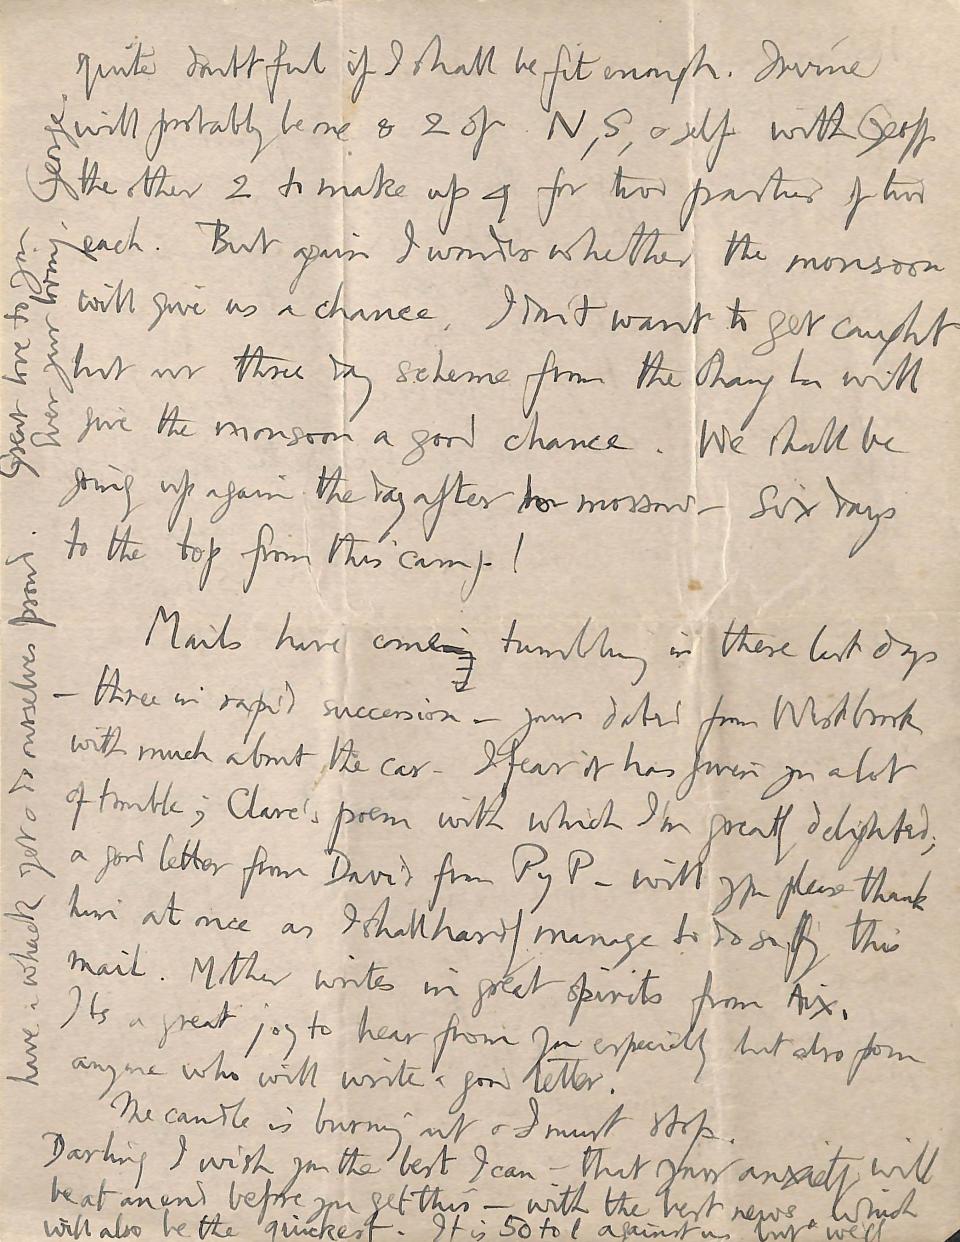 quite doubtful if I shall be fit enough. Irvine
will probably be one & 2 of N, S, & self with Geoff
the other 2 to make up 4 for two parties of two
each. But again I wonder whether the monsoon
will give us a chance. I don't want to get caught
but our three day scheme from the Chang La will
give the monsoon a good chance. We shall be
going up again the day after tomorrow - Six days
to the top from this camp!
Mails have come tumbling in these last days
- three in rapid succession - yours dated from Westbrook
with much about the car - I fear it has given you a lot
of trouble; Clare's poem with which I'm greatly delighted;
a good letter from David from PyP - will you please thank
him at once as I shall hardly manage to do so by this
mail. Mother writes in great spirits from Aix.
Its a great joy to hear from you especially but also from
anyone who will write a good letter.
The candle is burning out & I must stop.
Darling I wish you the best I can - that your anxiety will
be at an end before you get this - with the best news. Which
will also be the quickest. It is 50 to 1 against us but we'll
have a whack yet & do ourselves proud. Great love to you.
Ever your loving, George.